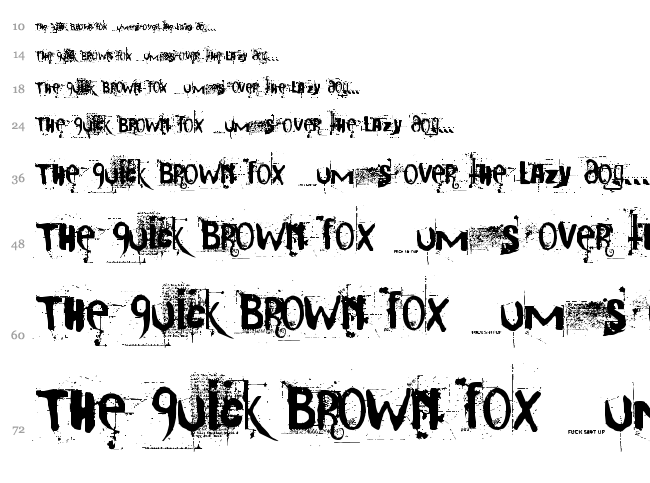 10 THe quick BROWN fox ums over the LAzy dog...
14 THe quick BROWN fox ums over the LAzy dog...
18 THe quick BROWN fox ums over the LAzy dog...
24 THe quick BROWN fox ums over the LAzy dog...
36 THe quick BROWN fox ums over the LAzy dog...
48 THe quick BROWN fox ums over
60 THe quick BROWN fox ums
72 THe quick BROWN fox FUCK SHIT UP um